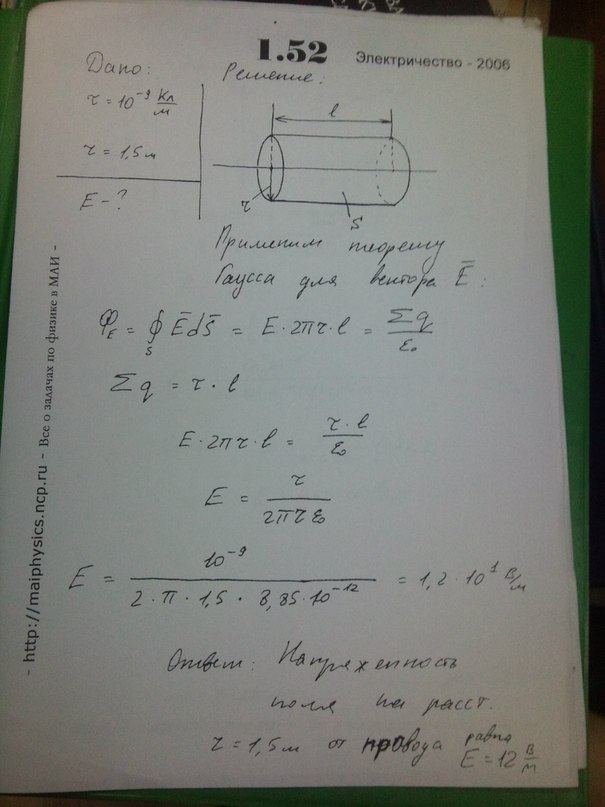 1.52
Электричество - 2006
Дано:
Решение:
τ = 10⁻⁹ Кл/м
r = 1,5 м
E - ?
l
r
S
Применим теорему
Гаусса для вектора E̅ :
Φ_E = ∮_S E̅ dS̅ = E · 2πr · l = Σq/ε₀
Σq = τ · l
E · 2πr · l = τ · l/ε₀
E = τ/2πrε₀
E = 10⁻⁹/2 · π · 1,5 · 8,85·10⁻¹² = 1,2 · 10¹ В/м
Ответ: Напряженность
поля на расст.
r = 1,5 м от провода равна
E = 12 В/м
- http://maiphysics.ncp.ru - Все о задачах по физике в МАИ -